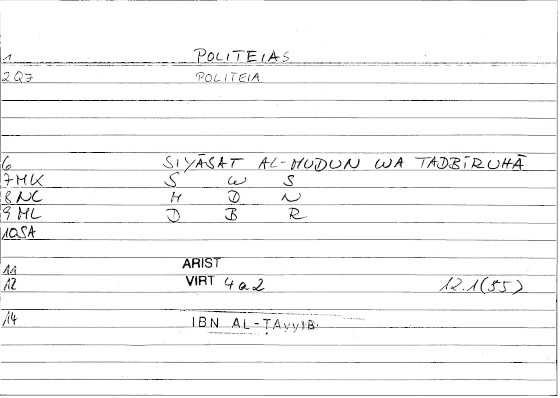 1 POLITEIAS
2Q7 POLITEIA
6 SIYĀSAT AL-MUDUN WA TADBĪRUHĀ
7MK S W S
8NC M D N
9ML D B R
10SA
11 ARIST
12 VIRT 4a2 12.1(55)
14 IBN AL-ṬAYYIB